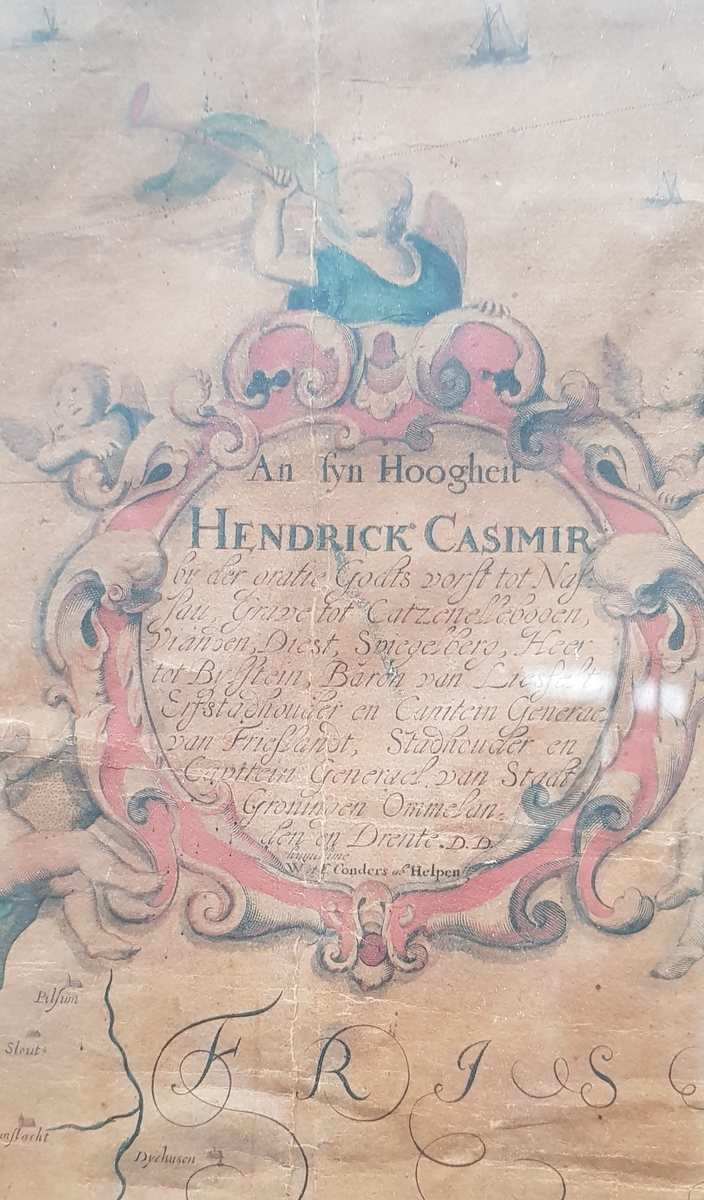 An syn Hoogheit
HENDRICK CASIMIR
by der gratie Godts vorst tot Nas-
sau, Grave tot Catzenellebogen,
Vianden, Diest, Spiegelberg, Heer
tot Bylstein, Baron van Liesfelt,
Erfstadhouder en Capitein Generael
van Frieslandt, Stadhouder en
Capitein Generael van Stadt
Groningen Ommelan-
den en Drente. D.D.
Conders ab Helpen
Pilsum
Slout
Dyehusen
FRIS